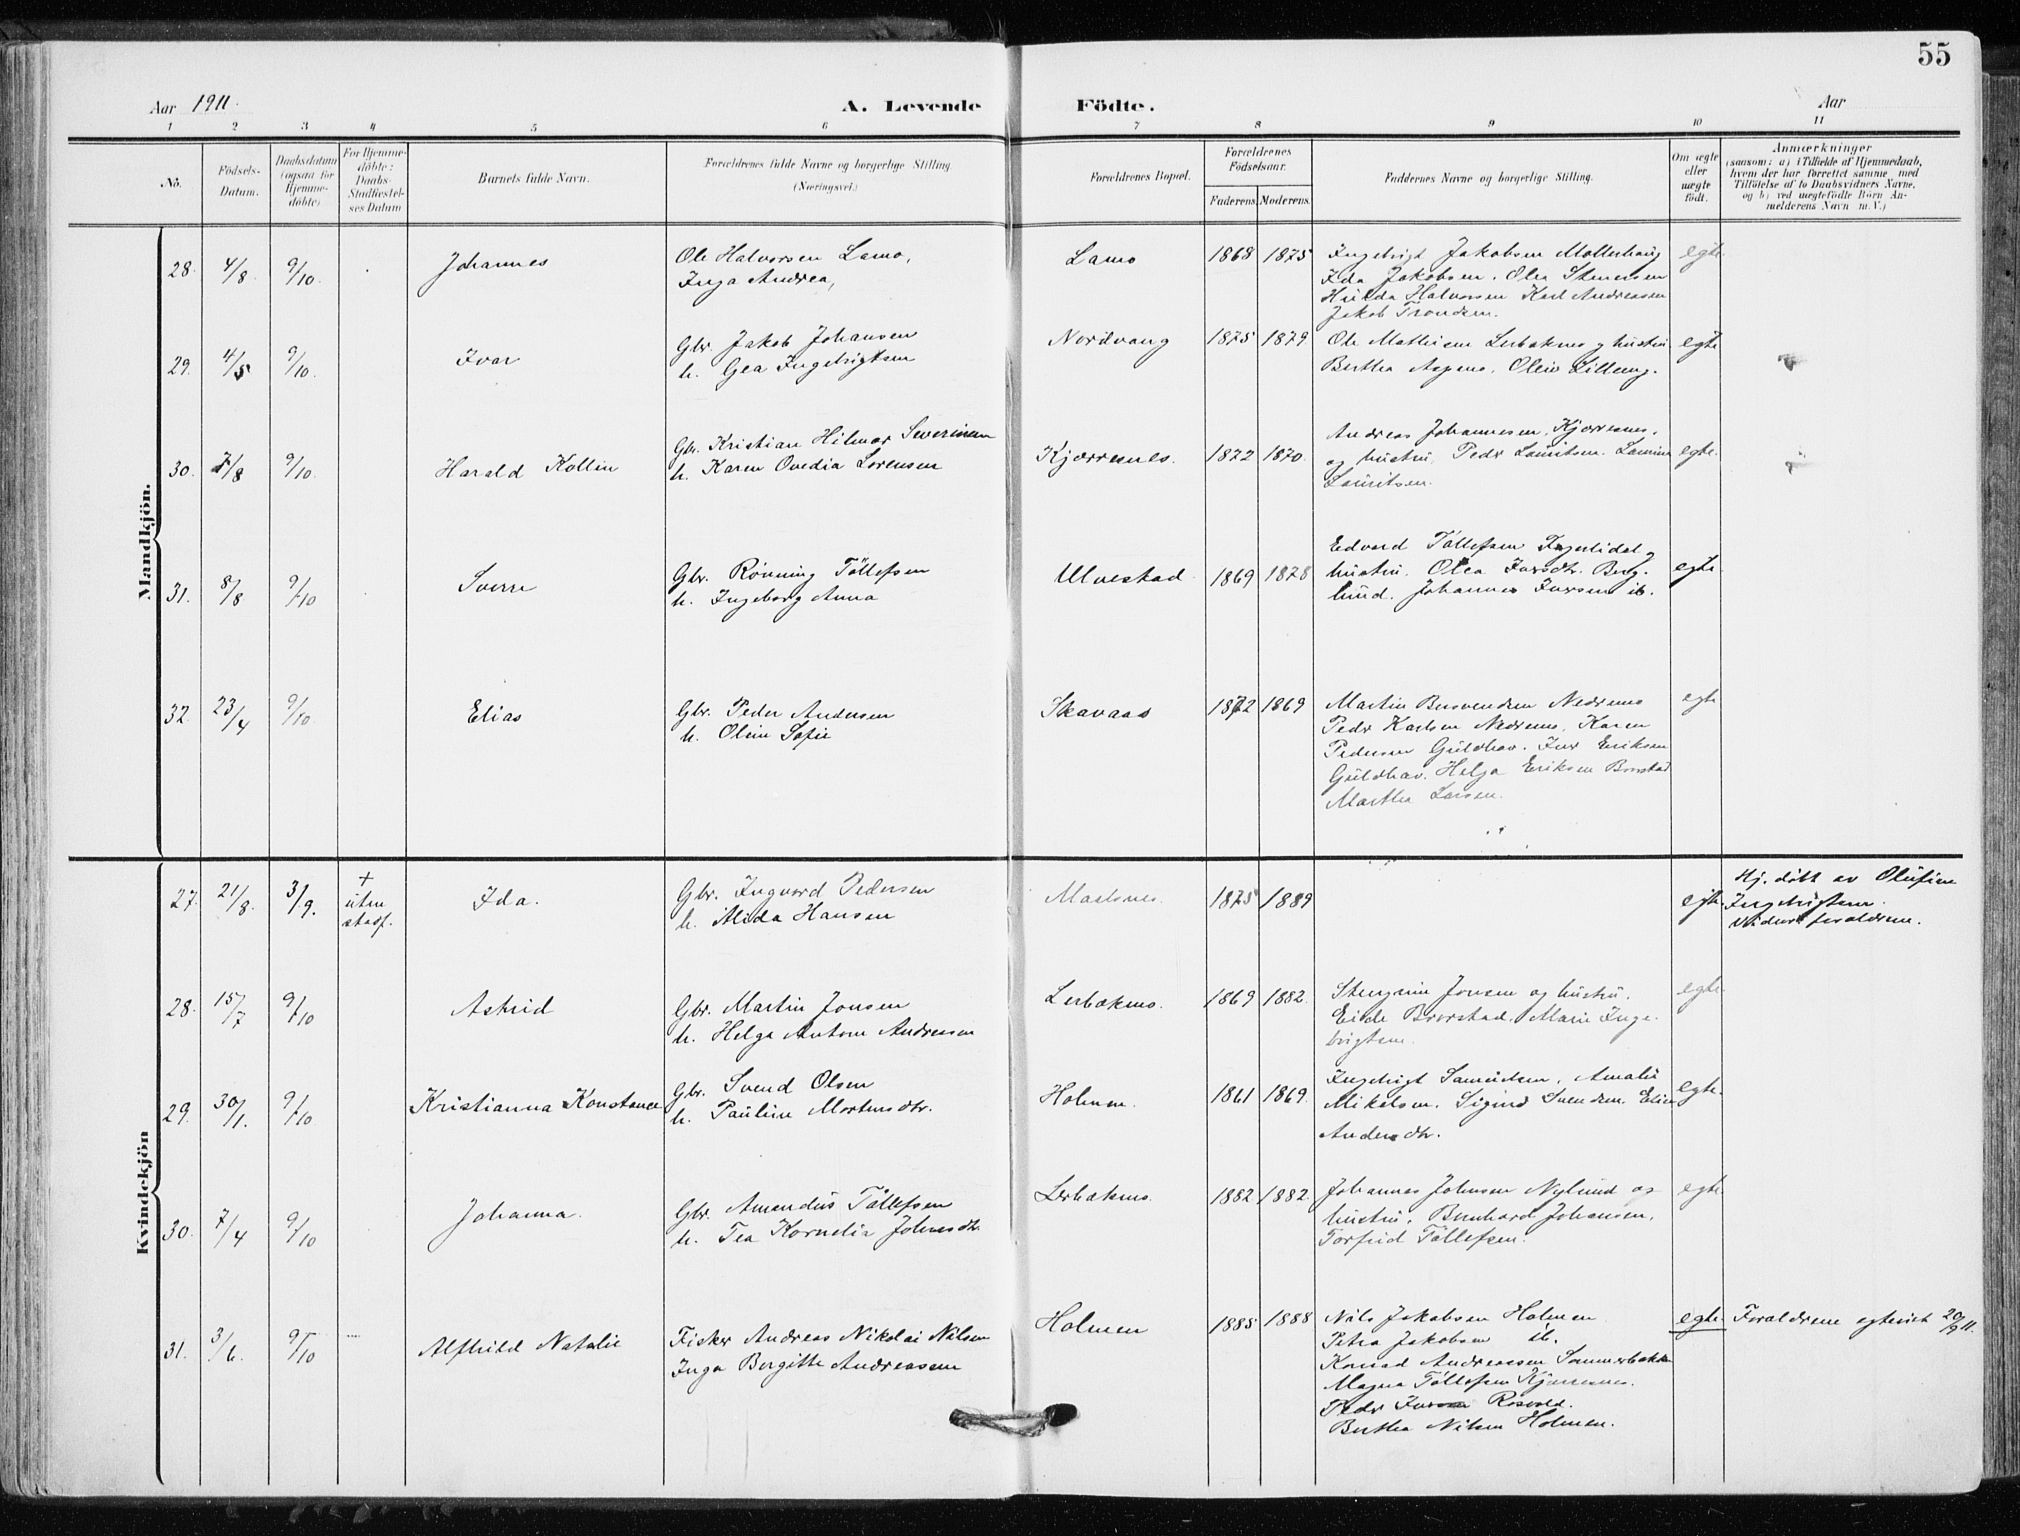 55
Aar 1911.
A. Levende Födte.
Aar
1 2 3 4 5 6 7 8 9 10 11
No.
Födsels-Datum.
Daabsdatum (ogsaa for Hjemme-döbte)
For Hjemme-döbte: Daabs-Stadfæstel-ses Datum
Barnets fulde Navn.
Forældrenes fulde Navne og borgerlige Stilling (Næringsvei.)
Forældrenes Bopæl.
Forældrenes Födselsaar.
Faderens. Moderens.
Faddernes Navne og borgerlige Stilling.
Om ægte eller uægte födt.
Anmærkninger
(saasom: a) i Tilfælde af Hjemmedaab, hvem der har forrettet samme, med Tilföielse af to Daabsvidners Navne, og b) ved uægtefödte Börn An-melderens Navn m. V.)
Mandkjön.
28. 4/8 9/10 Johannes
Ole Halvorsen Lamo,
Inga Andrea,
Lamo 1868 1875
Ingebrigt Jakobsen Mollerhaug
Ida Jakobsen. Olea Stenersen
Hulda Halvorsen Karl Andreassen
Jakob Trondsen.
egte
29. 4/5 9/10. Ivar
Gbr. Jakob Johansen
h. Gea Ingebrigtsen
Nordvang 1875 1879
Ole Mathisen Lerbakmo og hustru
Berthea Aspenes. Olein Lilleeng.
egte
30. 7/8 9/10. Harald Kollin
Gbr. Kristian Hilmar Severinsen
h. Karen Ovedia Lorensen
Kjærresnes. 1872 1870.
Andreas Johannesen, Kjærresnes,
og hustru Peder Lauritsen.
Lauritsen.
egte.
31. 8/8 9/10 Sverre
Gbr. Rönning Töllefsen
h. Ingeborg Anna
Ulvestad. 1869 1878
Edvard Töllefsen Fagerlidal og
hustru. Olea Iversdtr. Berg-
lund. Johannes Iversen ib.
egte
32 23/4 9/10 Elias
Gbr. Peder Andersen
h. Olein Sofie
Skavaas 1872 1869
Martin Nedremo
Peder Karlsen Nedremo, Karen
Pedersen Guldhav. Iver Eriksen
Guldhav. Helga Eriksen Brorstad
Marthea Larsen.
egte
Kvindekjön
27. 21/8. 3/9. + uten stadf. Ida.
Gbr. Ingvard Pedersen
h. Alida Hansen
1875 1889
egte.
Hj. döbt av Olufine
Ingebrigtsen.
Vidner foraldrene.
28. 15/7 9/10 Astrid
Gbr. Martin Jonsen
h. Helga Antone Andreassen
Lerbakmo. 1869 1882.
Stengrim Jonsen og hustru.
Eide Brorstad. Marie Inge-
brigtsen.
egte.
29. 30/1. 9/10 Kristianna Konstance
Gbr. Svend Olsen
h. Pauline Mortensdtr.
Holmen. 1861 1869.
Ingebrigt Samuelsen, Amalie
Mikalsen. Sigurd Svendsen. Elen
Andersdtr.
egte.
30. 7/4 9/10 Johanna.
Gbr. Amandus Töllefsen
h. Tea Kornelia Johnsdtr.
Lerbakmo. 1882 1882.
Johannes Johnsen Nylund og
hustru, Bernhard Johansen,
Torfrid Töllefsen.
egte.
31. 3/6. 9/10 Alfhild Natalie
Fisker Andreas Nikolai Nilsen
Inga Bergitte Andreassen
Holmen 1885 1888
Nils Jakobsen Holmen
Petra Jakobsen ib.
Konrad Andreassen Sommerbakken
Magna Töllefsen Kjærresnes.
Peder Iversen Rosvold.
Berthea Nilsen Holmen.
egte.
Foraldrene egteviet 20/9 11.